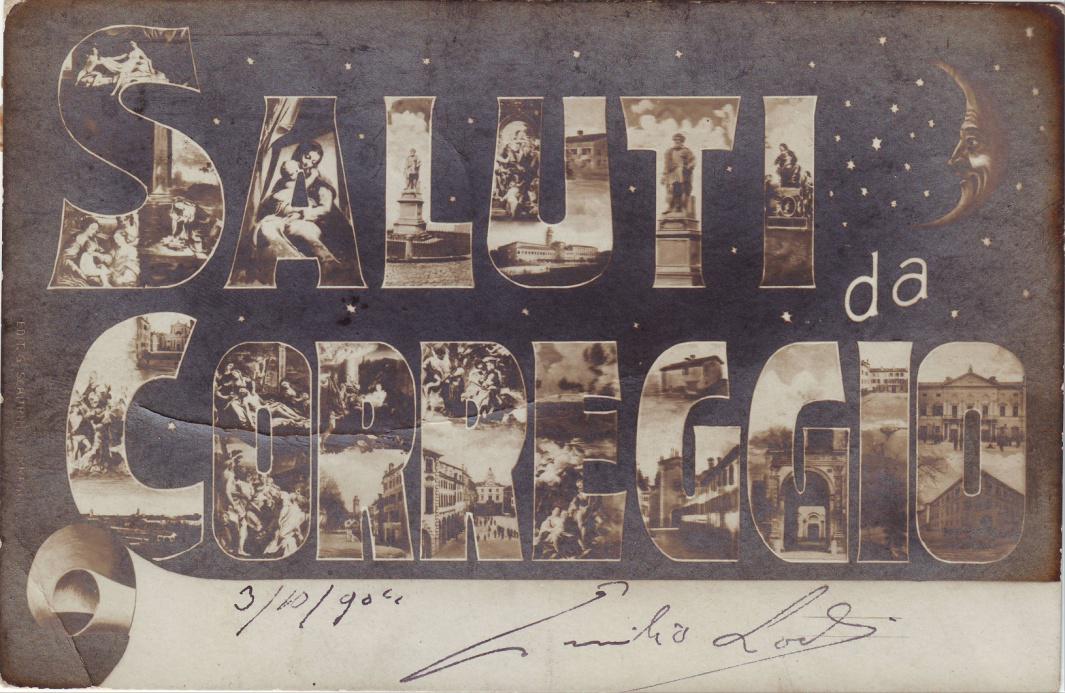 SALUTI
da
CORREGGIO
3/10/904
Emilio Lodi